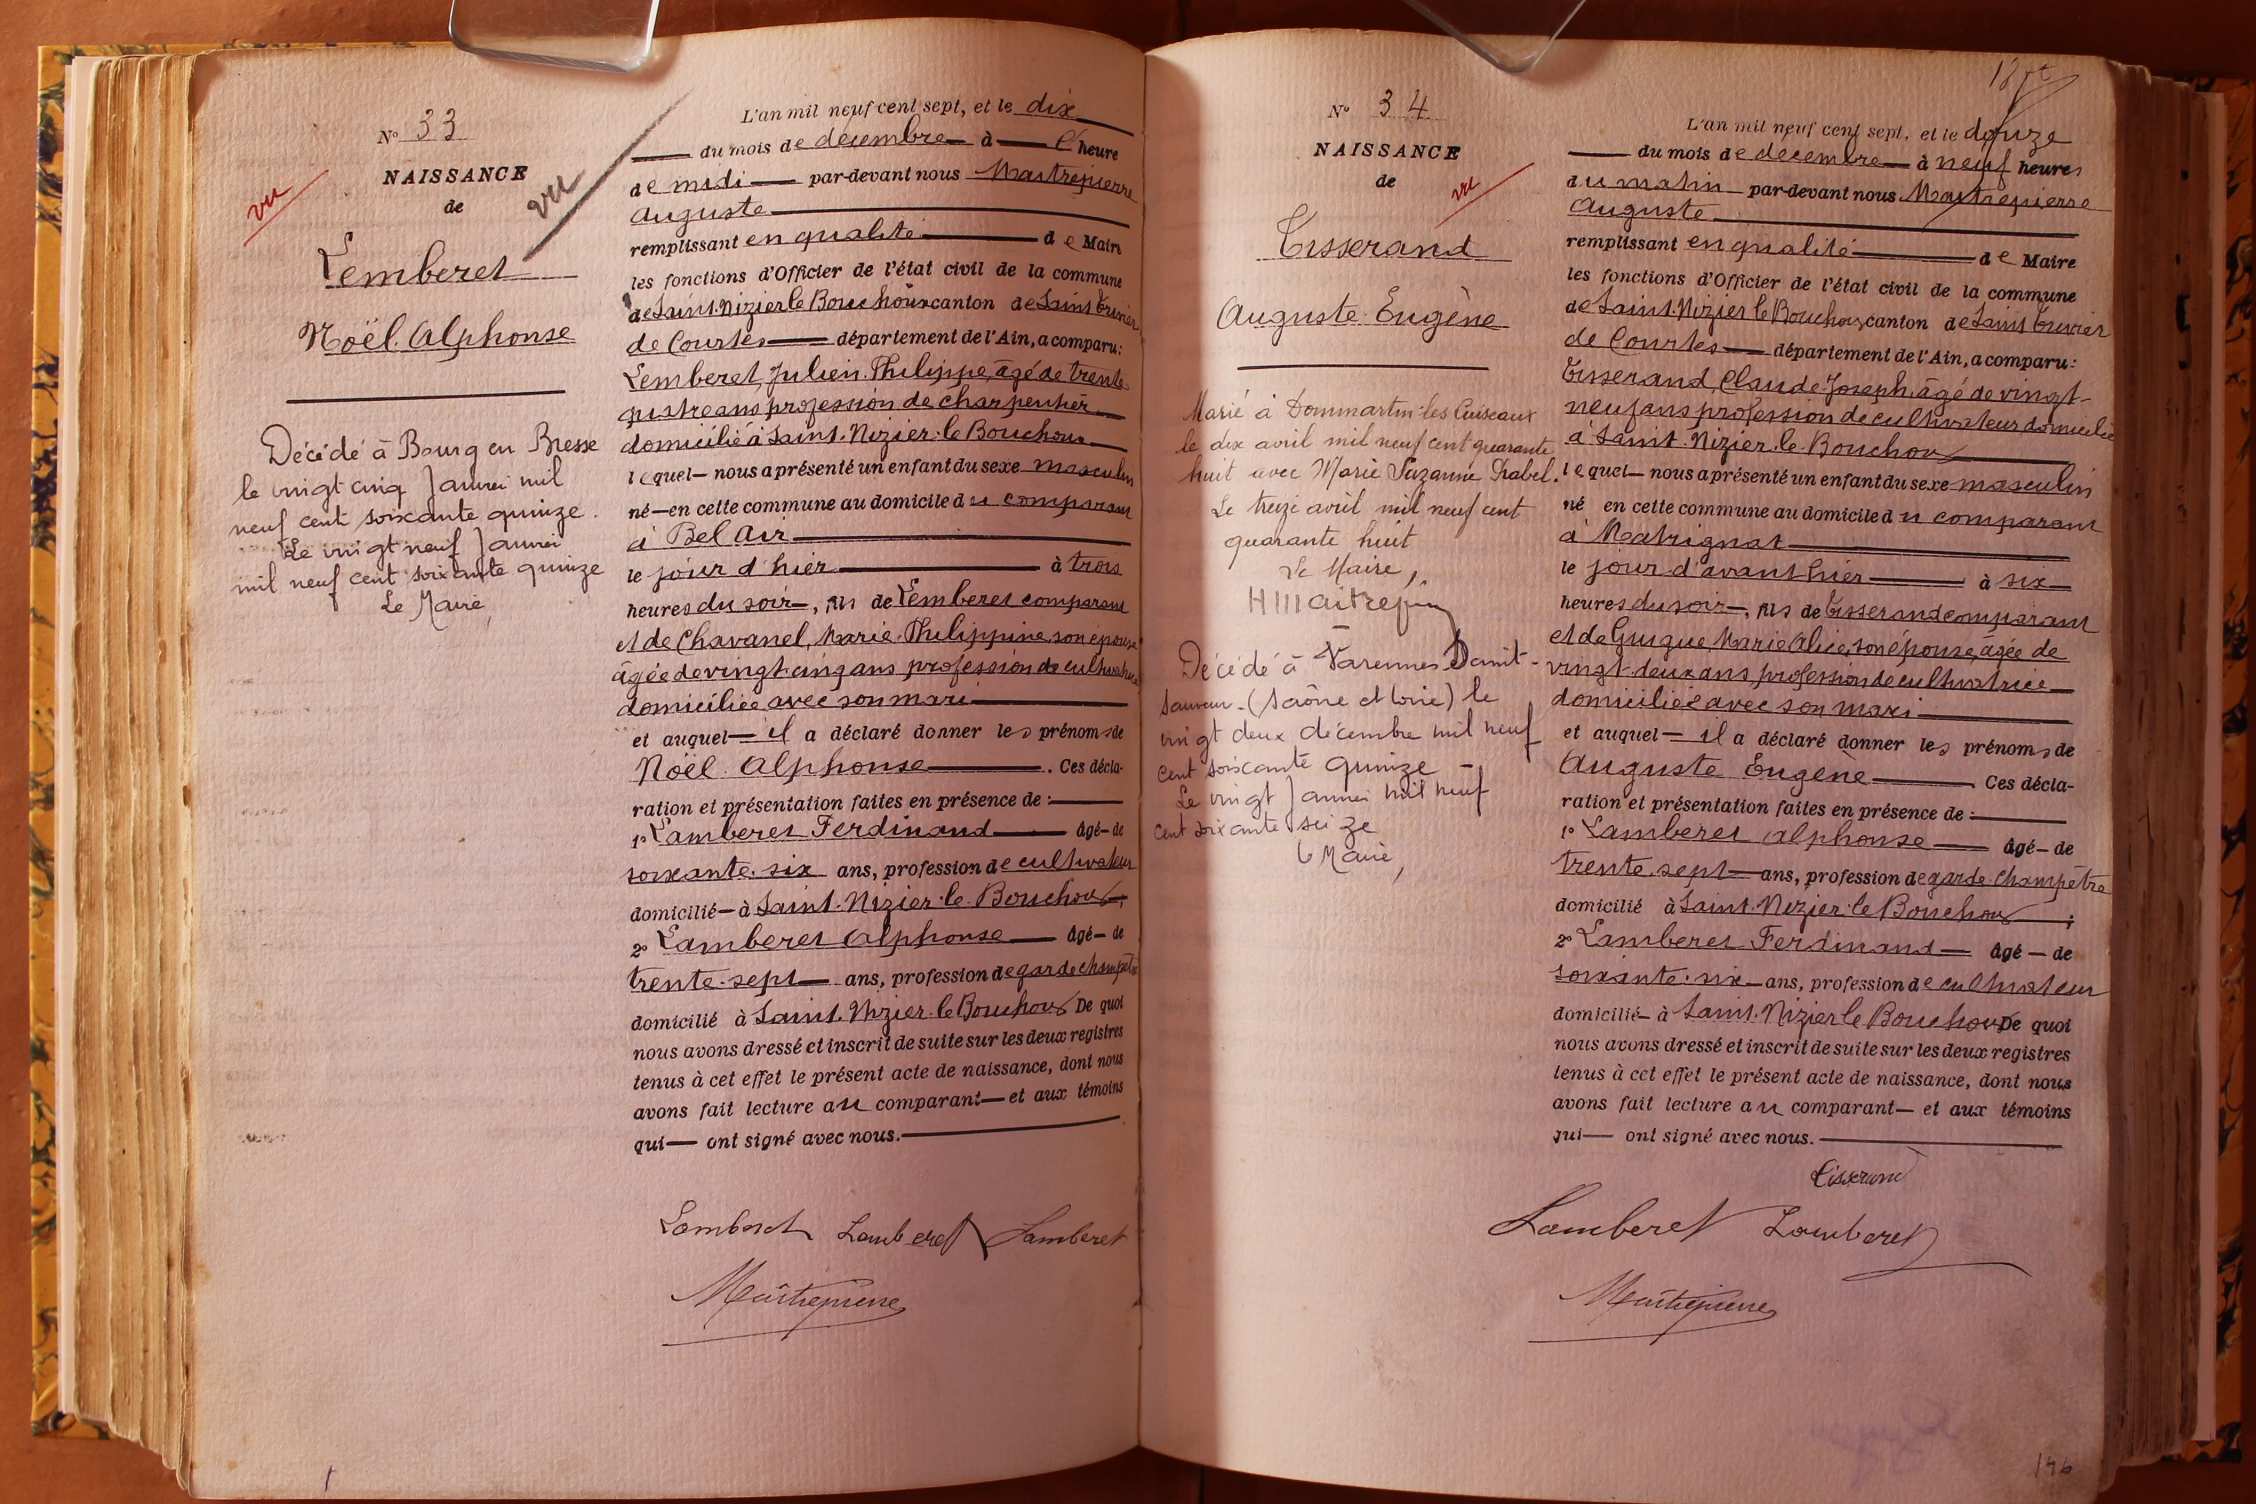 N° 33
NAISSANCE
de
vu
vu
Lemberet
Noël Alphonse
Décédé à Bourg en Bresse
le vingt cinq Janvier mil
neuf cent soixante quinze.
Le vingt neuf Janvier
mil neuf cent soixante quinze
Le Maire,
L'an mil neuf cent sept, et le dix
du mois de décembre à heure
de midi par-devant nous Maitrepierre
Auguste
remplissant en qualité de Maire
les fonctions d'Officier de l'état civil de la commune
de Saint-Nizier le Bouchoux canton de Saint Trivier
de Courtes département de l'Ain, a comparu:
Lemberet, Julien Philippe, âgé de trente
quatre ans profession de charpentier
domicilié à Saint-Nizier-le-Bouchoux
lequel nous a présenté un enfant du sexe masculin
né en cette commune au domicile du comparant
à Bel Air
le jour d'hier à trois
heures du soir, fils de Lemberet comparant
et de Chavanel, Marie Philippine, son épouse
âgée de vingt cinq ans profession de cultivatrice
domiciliée avec son mari
et auquel il a déclaré donner les prénoms de
Noël Alphonse. Ces décla-
ration et présentation faites en présence de:
1° Lamberet Ferdinand âgé de
soixante-six ans, profession de cultivateur
domicilié à Saint-Nizier-le-Bouchoux,
2° Lamberet Alphonse âgé de
trente-sept ans, profession de garde champêtre
domicilié à Saint-Nizier-le-Bouchoux De quoi
nous avons dressé et inscrit de suite sur les deux registres
tenus à cet effet le présent acte de naissance, dont nous
avons fait lecture au comparant et aux témoins
qui ont signé avec nous.
Lamberet Lamberet Lamberet
Maitrepierre
N° 34
NAISSANCE
de
vu
Tisserand
Auguste Eugène
Marié à Dommartin les Cuiseaux
le dix avril mil neuf cent quarante
huit avec Marie Suzanne Rabel.
Le treize avril mil neuf cent
quarante huit
Le Maire,
H Maitrepierre
Décédé à Varennes Saint-
Sauveur (Saône et Loire) le
vingt deux décembre mil neuf
cent soixante quinze
Le vingt Janvier mil neuf
cent soixante seize
Le Maire,
L'an mil neuf cent sept, et le douze
du mois de décembre à neuf heures
du matin par-devant nous Maitrepierre
Auguste
remplissant en qualité de Maire
les fonctions d'Officier de l'état civil de la commune
de Saint-Nizier le Bouchoux canton de Saint Trivier
de Courtes département de l'Ain, a comparu:
Tisserand, Claude-Joseph, âgé de vingt-
neuf ans profession de cultivateur domicilié
à Saint-Nizier-le-Bouchoux
lequel nous a présenté un enfant du sexe masculin
né en cette commune au domicile du comparant
à Matrignat
le jour d'avant hier à six
heures du soir, fils de Tisserand comparant
et de Guigue, Marie Alice, son épouse, âgée de
vingt-deux ans, profession de cultivatrice
domiciliée avec son mari
et auquel il a déclaré donner les prénoms de
Auguste Eugène Ces décla-
ration et présentation faites en présence de:
1° Lamberet Alphonse âgé de
trente-sept ans, profession de garde champêtre
domicilié à Saint-Nizier-le-Bouchoux;
2° Lamberet Ferdinand âgé de
soixante-six ans, profession de cultivateur
domicilié à Saint-Nizier le Bouchoux De quoi
nous avons dressé et inscrit de suite sur les deux registres
tenus à cet effet le présent acte de naissance, dont nous
avons fait lecture au comparant et aux témoins
qui ont signé avec nous.
Tisserand
Lamberet Lamberet
Maitrepierre
146